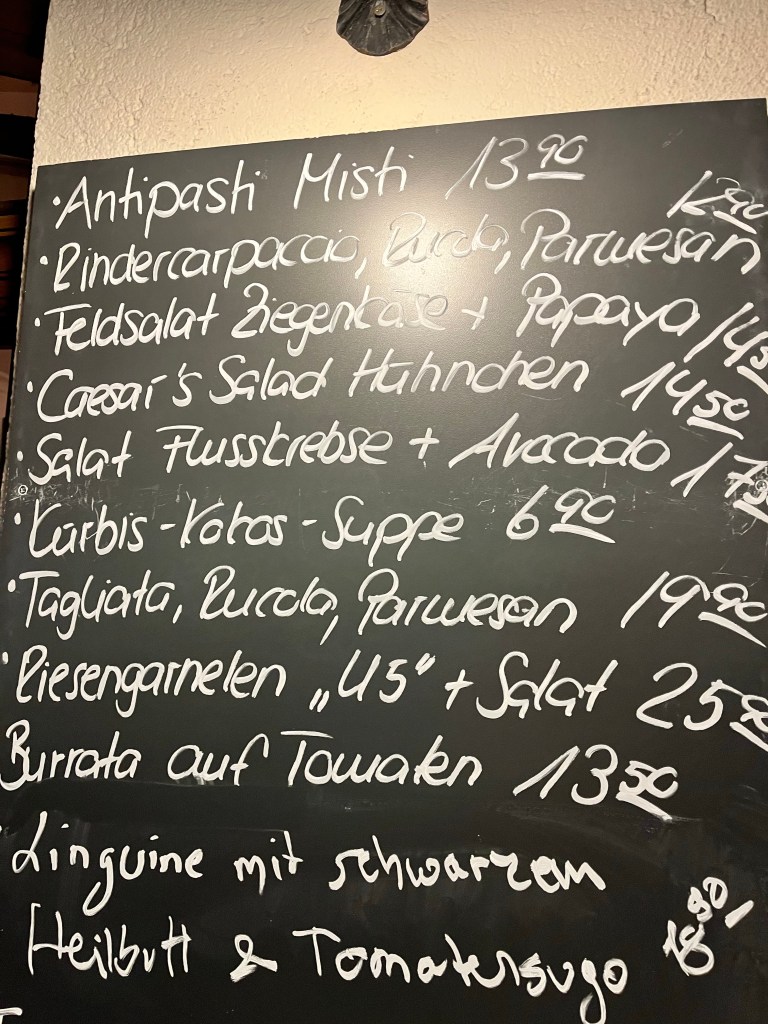 ·Antipasti Misti 13 90
·Rindercarpaccio, Rucola, Parmesan 12 90
·Feldsalat Ziegenkäse + Papaya
·Caesar's Salad Hühnchen 14 50
·Salat Flusskrebse + Avocado
·Kürbis-Kokos-Suppe 6 90
·Tagliata, Rucola, Parmesan 19 90
·Riesengarnelen „U5“ + Salat 25
Burrata auf Tomaten 13 50
·Linguine mit schwarzem
Heilbutt & Tomatensugo